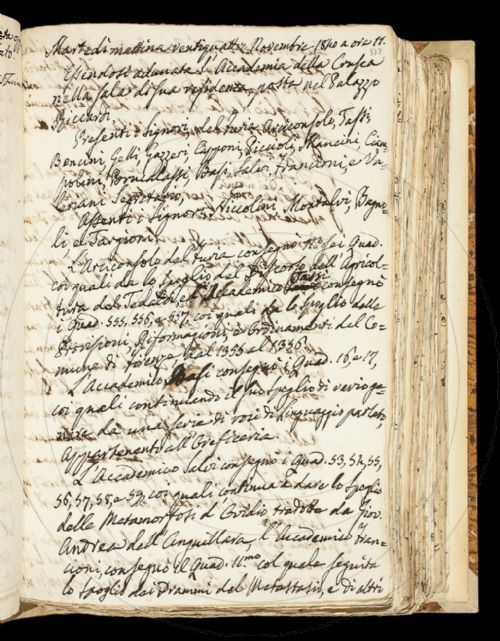 Martedì mattina ventiquattro Novembre 1840 a ore 11.
337
Essendosi adunata l'Accademia della Crusca
nella sala di sua residenza, posta nel Palazzo
Riccardi
Presenti i Signori, del Furia Arciconsolo, Tassi,
Bencini, Gelli, Gazzeri, Capponi, Piccioli, Mancini, Ciam-
polini, Borni, Becchi, Salvi, Francioni, e Va-
leriani Segretario,
Assenti i Signori Niccolini, Montalvi, Bagno-
li, e Targioni.
L'Arciconsolo del Furia consegnò sei Quad.
coi quali da lo spoglio del Discorso dell'Agricol-
tura del Tedaldi, e l'Accademico Tassi consegnò
i Quad. 555, 556, e 557. coi quali da lo spoglio delle
Provvisioni, Riformagioni, e Ordinamenti del Co-
mune di Firenze dal 1355 al 1356
L'Accademico consegnò i Quad. 16, e 17,
coi quali continuando il suo spoglio di vario ge-
nere da una serie di voci di linguaggio parlato,
appartenenti all'Oreficeria.
L'Accademico Salvi consegnò i Quad. 53, 54, 55,
56, 57, 58, e 59, coi quali continua a dare lo spoglio
delle Metamorfosi d'Ovidio tradotte da Giov.
Andrea dell'Anguillara, l'Accademico Fran-
cioni, consegnò il Quad. 11.mo col quale seguita
lo spoglio dei Drammi del Metastasio, e di altri